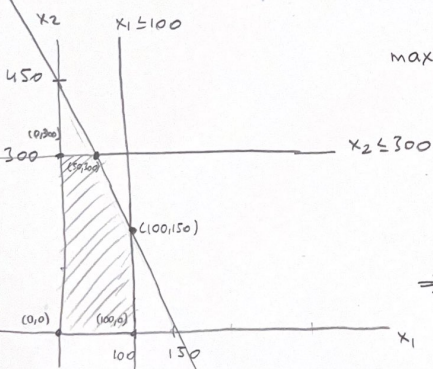 x₂
x₁≤100
450
max
(0,300)
300
(50,300)
x₂≤300
(100,150)
⇒
(0,0)
(100,0)
x₁
100
150